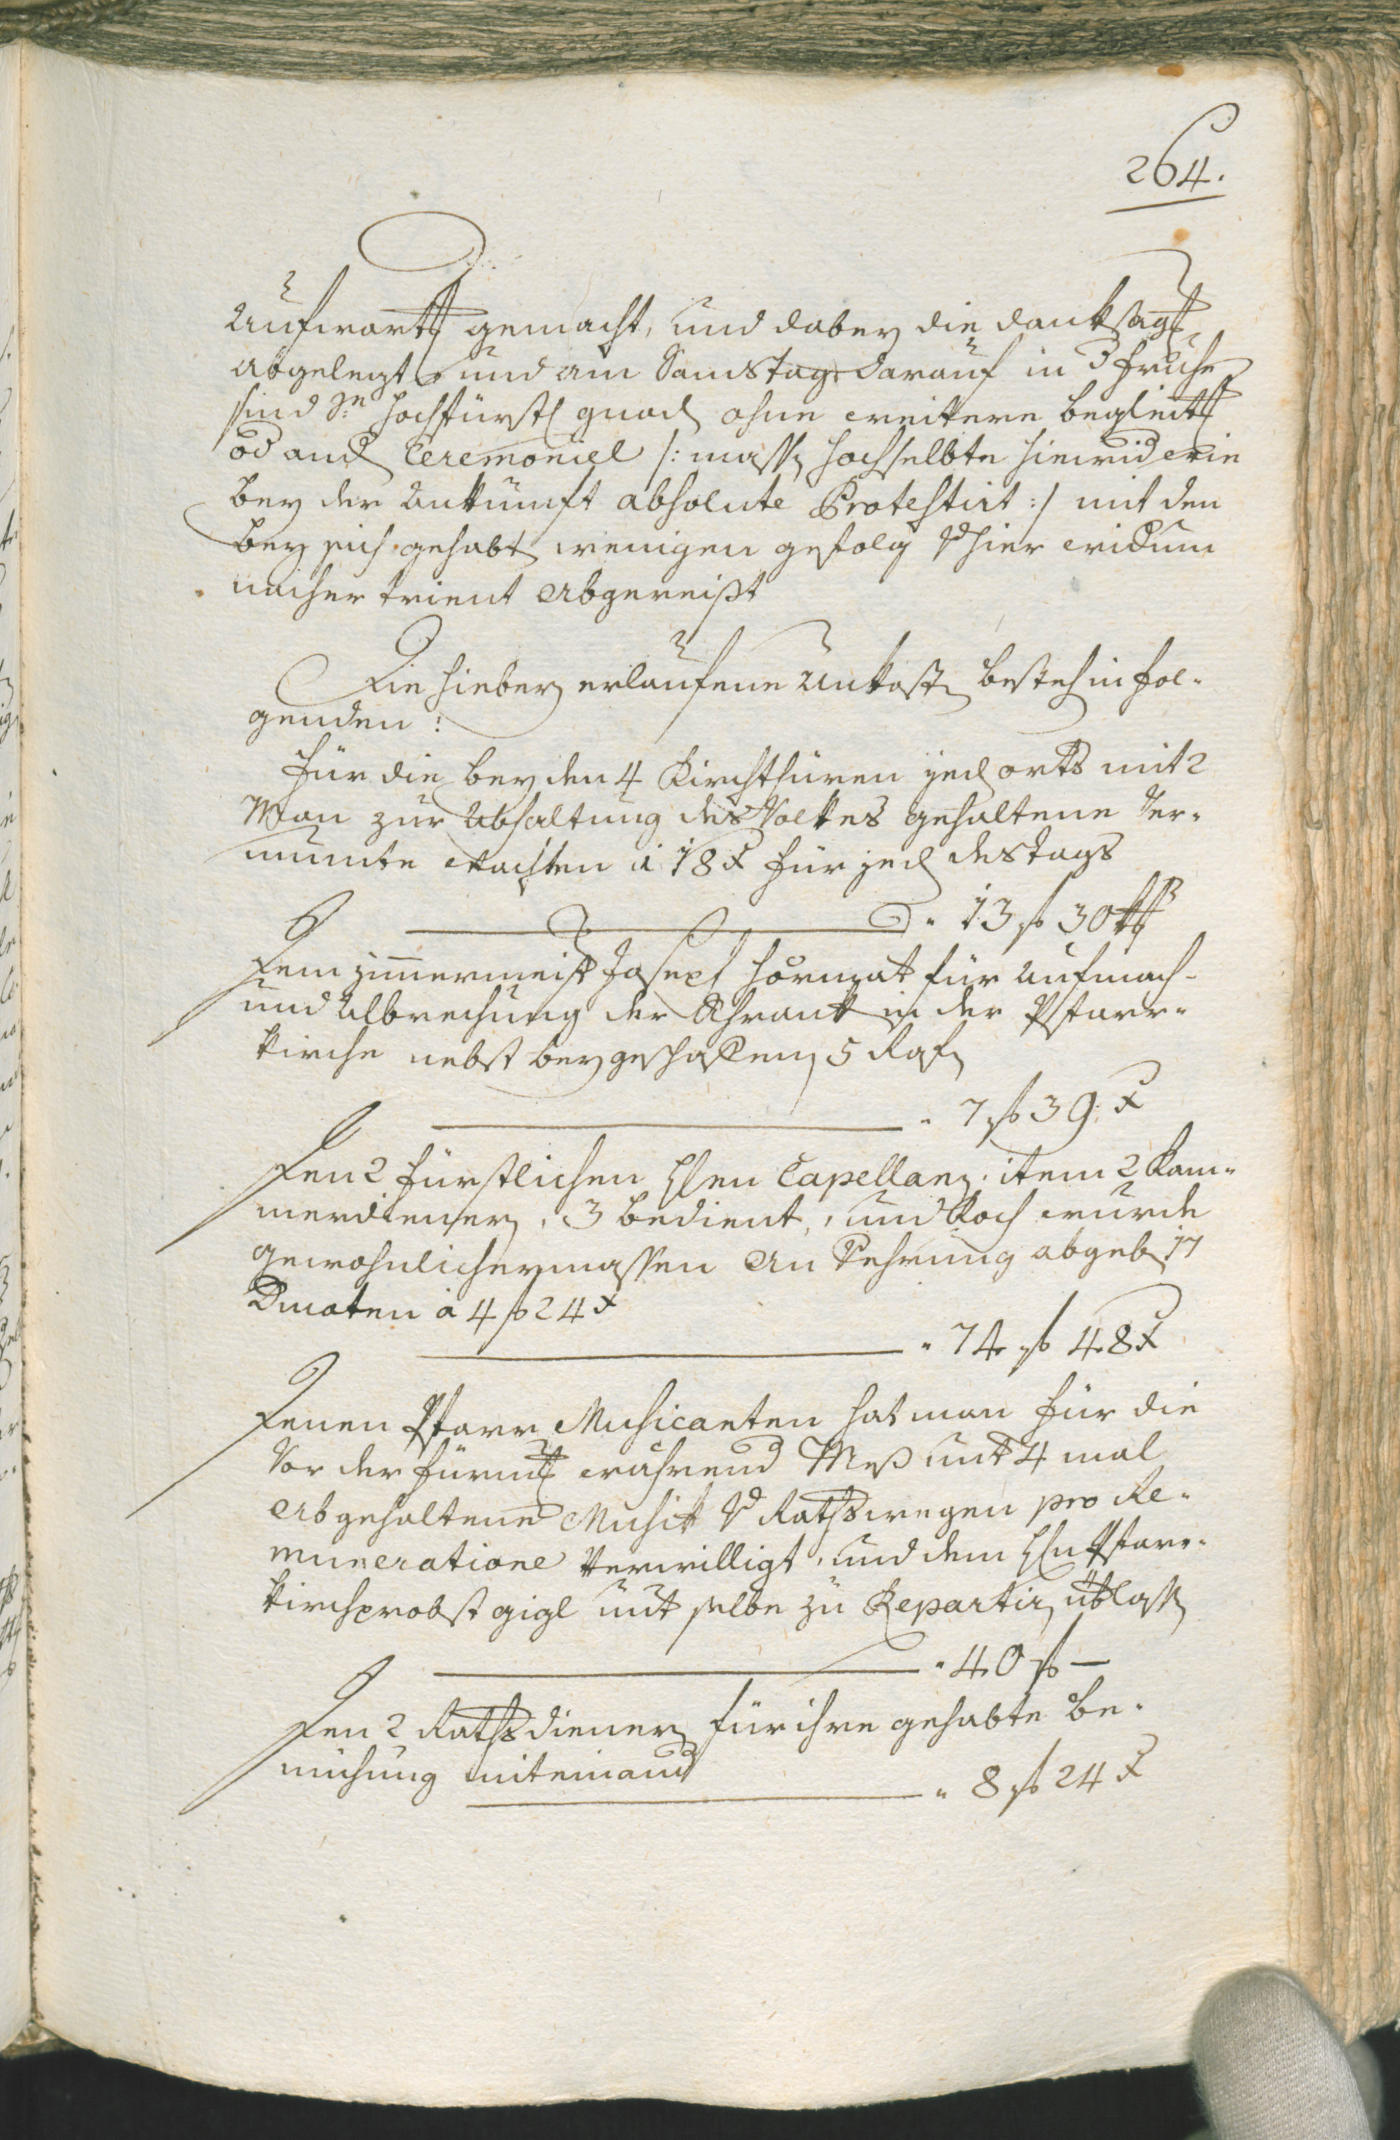 264.
Aufwartg gemacht, und dabey die danksagg
abgelegt, und am Samstag darauf in d Fruhe
sind Sr hochfürstl gnad ohne weitere begleitg
od and Ceremoniel /: mass hochselbte hierwider ein
bey der Ankunft absolute Protestirt :/ mit den
bey sich gehabt wenigen gefolg v hier widum
nacher Trient abgereißt
Die hiebey erlaufene Unkost besteh in fol-
genden:
Für die bey den 4 Kirchthüren jed orts mit 2
Man zur Abhaltung des Volkes gehaltene Ver-
mumte Wachten a 18 x für jed des tags
" 13 f 30 x
Dem zimmermeist Joseph Hörmat für Aufmach-
und Abbrechung der Schrank in der Pfarr-
kirche nebst beygeschaften 5
" 7 f 39 x
Den 2 fürstlichen Hren Capellan, item 2 Kam-
merdienern, 3 bedient, und Koch wurde
gewohnlichermassen an Vehrung abgeb 17
Ducaten a 4 f 24 x
" 74 f 48 x
Denen Pfarr Musicanten hat man für die
Vor der fürmtg wahrend Meß mit 4 mal
abgehaltene Musik v Rathswegen pro Re-
muneratione Verwilligt, und dem Hn Pfarr-
kirchprobst gigl mit selbe zu Repartir üblass
" 40 f —
Den 2 Rathsdienern für ihre gehabte be-
miehung miteinand
" 8 f 24 x